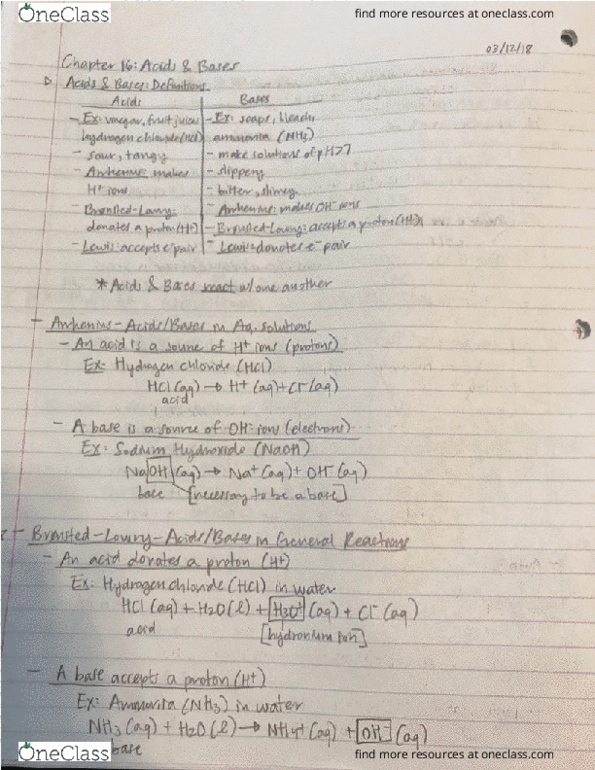 OneClass
find more resources at oneclass.com
03/12/18
Chapter 16: Acids & Bases
Acids & Bases: Definitions
Acids
Bases
- Ex: vinegar, fruit juices
- Ex: soaps, bleach,
hydrogen chloride (HCl)
ammonia (NH3)
- sour, tangy
- make solutions of pH>7
- Arrhenius: makes
- slippery
H+ ions
- bitter, slimey
- Brønsted-Lowry:
- Arrhenius: makes OH- ions
donates a proton (H+)
- Brønsted-Lowry: accepts a proton (H+)
- Lewis: accepts e- pair
- Lewis: donates e- pair
* Acids & Bases react w/ one another
- Arrhenius - Acids/Bases in Aq. solutions
- An acid is a source of H+ ions (protons)
Ex: Hydrogen chloride (HCl)
HCl (aq) → H+ (aq) + Cl- (aq)
acid
- A base is a source of OH- ions (electrons)
Ex: Sodium Hydroxide (NaOH)
NaOH (aq) → Na+ (aq) + OH- (aq)
base [necessary to be a base]
- Brønsted-Lowry - Acids/Bases in General Reactions
- An acid donates a proton (H+)
Ex: Hydrogen chloride (HCl) in water
HCl (aq) + H2O (l) + H3O+ (aq) + Cl- (aq)
acid [hydronium ion]
- A base accepts a proton (H+)
Ex: Ammonia (NH3) in water
NH3 (aq) + H2O (l) → NH4+ (aq) + OH- (aq)
base
OneClass
find more resources at oneclass.com